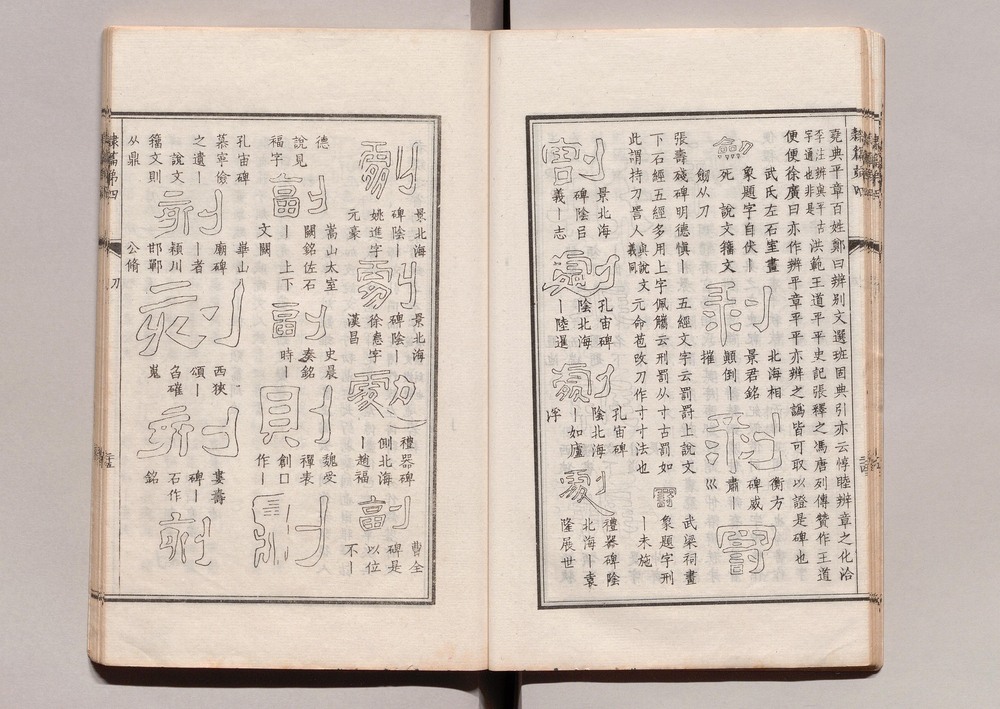 堯典平章百姓鄭曰辨别文選班固典引亦云惇睦辨章之化洽
李注辨與平古洪範王道平平史記張釋之馮唐列傳贊作王道
字通也非是
便便徐廣曰亦作辨平章平平亦辨之譌皆可取以證是碑也
劒
武氏左石室畫
象題字自伏丨
死
說文籀文
劒从刀
利
北海相
景君銘
顛倒丨
摧
利
衡方
碑威
肅丨
巛
罰
張壽殘碑明德慎丨
五經文字云罰罸上說文
下石經五經多用上字佩觿云刑罰从寸古罰如
此謂持刀詈人
與說文
義同
元命苞改刀作寸寸法也
罰
武梁祠畫
象題字刑
丨未施
割
景北海
碑陰呂
義丨志
劇
孔宙碑
陰北海
丨陸暹
劇
孔宙碑
陰北海
丨如廬
浮
劇
禮器碑陰
北海丨袁
隆展世
隸篇第四
劇
景北海
碑陰丨
姚進字
元豪
劇
景北海
碑陰丨
徐惪字
漢昌
劇
禮器碑
側北海
丨趙福
副
曹全
碑是
以位
不丨
德
說見
福字
副
嵩山太室
闕銘佐石
丨
上下
文闕
副
史晨
奏銘
時丨
則
魏受
禪表
創口
作丨
則
孔宙碑
慕寧儉
之遺丨
說文
籀文則
从鼎
刻
華山
廟碑
丨者
潁川
邯鄲
公脩
刻
西狹
頌丨
嵬
刻
婁壽
碑丨
石作
銘
刻
隸篇第四
刀